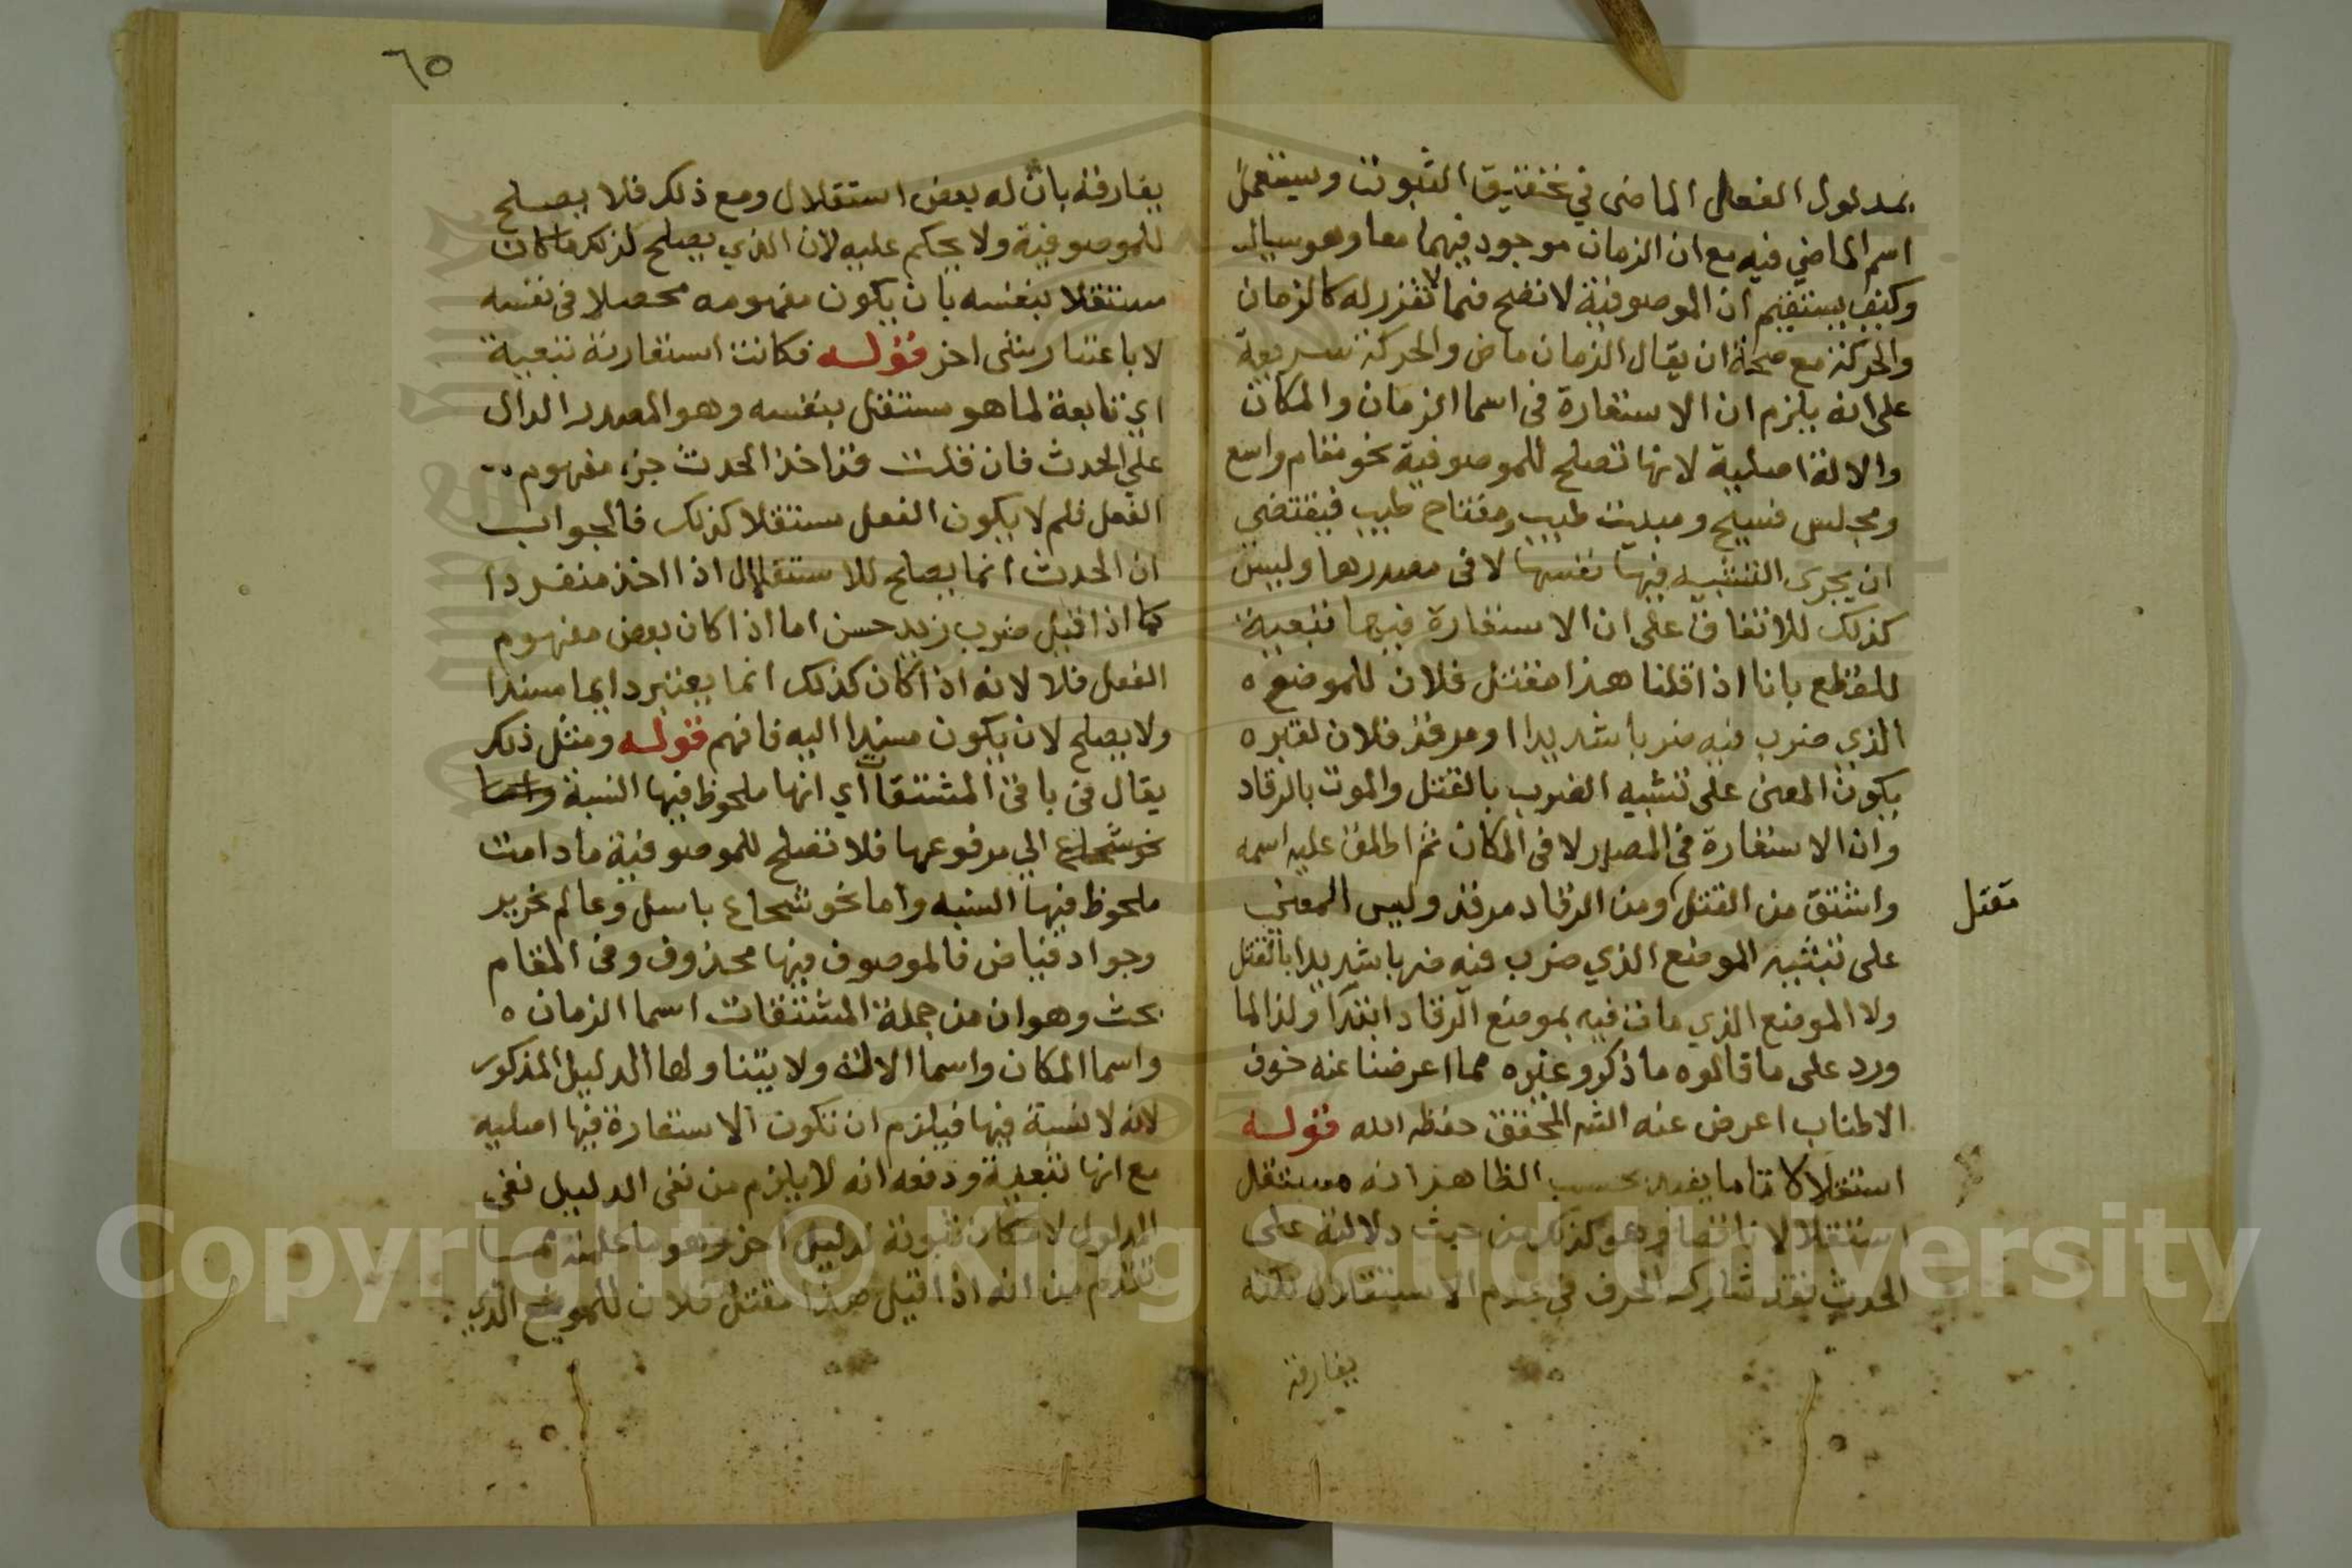 بمدلول الفعل الماضى في تحقيق الثبوت ويستعمل
اسم الماضي فيه مع ان الزمان موجود فيهما معا وهو سيال
وكيف يستقيم ان الموصوفية لا تصح فيما لا تقرر له كالزمان
والحركة مع صحة ان يقال الزمان ماض والحركة سريعة
على انه يلزم ان الاستعارة فى اسما الزمان والمكان
والالة اصلية لانها تصلح للموصوفية نحو مقام واسع
ومجلس فسيح ومبيت طيب ومفتاح طيب فيقتضي
ان يجرى التشبيه فيها نفسها لا فى مصدرها وليس
كذلك للاتفاق على ان الاستعارة فيها تبعية
للقطع بانا اذا قلنا هذا مقتل فلان للموضع ه
الذي ضرب فيه ضربا شديدا او مرقد فلان لقبره
يكون المعنى على تشبيه الضرب بالقتل والموت بالرقاد
وان الاستعارة فى المصدر لا فى المكان ثم اطلق عليه اسمه
واشتق من القتل ومن الرقاد مرقد وليس المعنى
مقتل
على تشبيه الموضع الذي ضرب فيه ضربا شديدا بالقتل
ولا الموضع الذي مات فيه بموضع الرقاد ابتدا ولذا لما
ورد على ما قالوه ما ذكر وغيره مما اعرضنا عنه خوف
الاطناب اعرض عنه الشر المحقق حفظه الله قوله
استقلالا تاما يفيد بحسب الظاهر انه مستقل
استقلالا ناقصا وهو كذلك من حيث دلالته على
الحدث فقد شارك الحرف في عدم الاستقلال لكنه
يفارقه
٦٥
يفارقه بان له بعض استقلال ومع ذلك فلا يصلح
للموصوفية ولا يحكم عليه لان الذي يصلح لذلك ما كان
مستقلا بنفسه بان يكون مفهومه محصلا فى نفسه
لا باعتبار شى اخر قوله فكانت استعارته تبعية
اي تابعة لما هو مستقل بنفسه وهو المصدر الدال
على الحدث فان قلت قد اخذ الحدث جزء مفهوم
الفعل فلم لا يكون الفعل مستقلا كذلك فالجواب
ان الحدث انما يصلح للاستقلال اذا اخذ منفردا
كما اذا قيل ضرب زيد حسن اما اذا كان بعض مفهوم
الفعل فلا لانه اذا كان كذلك انما يعتبر دايما مسندا
ولا يصلح لان يكون مسندا اليه فافهم قوله ومثل ذلك
يقال فى باقى المشتقات اي انها ملحوظ فيها النسبة واما
نحو شجاع الي مرفوعها فلا تصلح للموصوفية ما دامت
ملحوظ فيها النسبه واما نحو شجاع باسل وعالم نحرير
وجواد فياض فالموصوف فيها محذوف وفى المقام
بحث وهو ان من جملة المشتقات اسما الزمان ه
واسما المكان واسما الالة ولا يتناولها الدليل المذكور
لانه لا نسبة فيها فيلزم ان تكون الاستعارة فيها اصليه
مع انها تبعية ودفعه انه لا يلزم من نفى الدليل نفى
المدلول لامكان ثبوته لدليل اخر وهو ما علمته مما
تقدم من انه اذا قيل هذا مقتل فلان للموضع الذي
Copyright © King Saud University